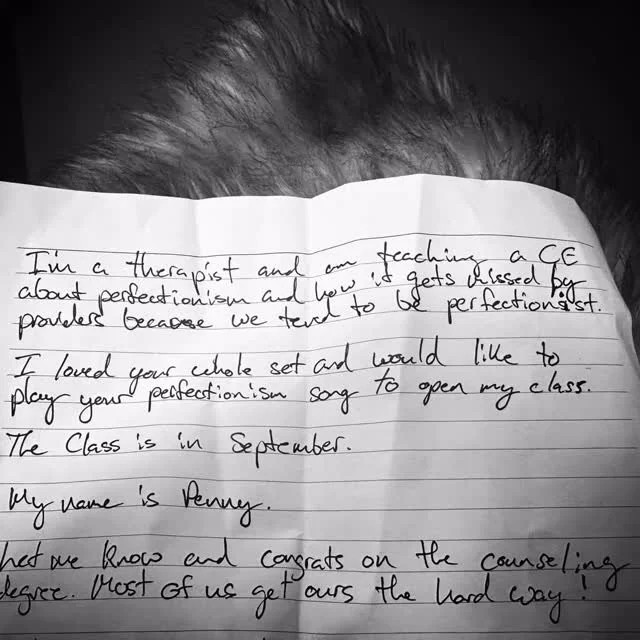 I'm a therapist and am teaching a CE
about perfectionism and how it gets missed by
providers because we tend to be perfectionist.
I loved your whole set and would like to
play your perfectionism song to open my class.
The Class is in September.
My name is Penny.
Let me know and congrats on the counseling
degree. Most of us get ours the hard way!